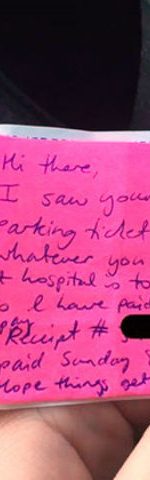 Hi there,
I saw your
parking ticket
whatever you
hospital is to
I have paid
pay
Receipt #
paid Sunday
Hope things get